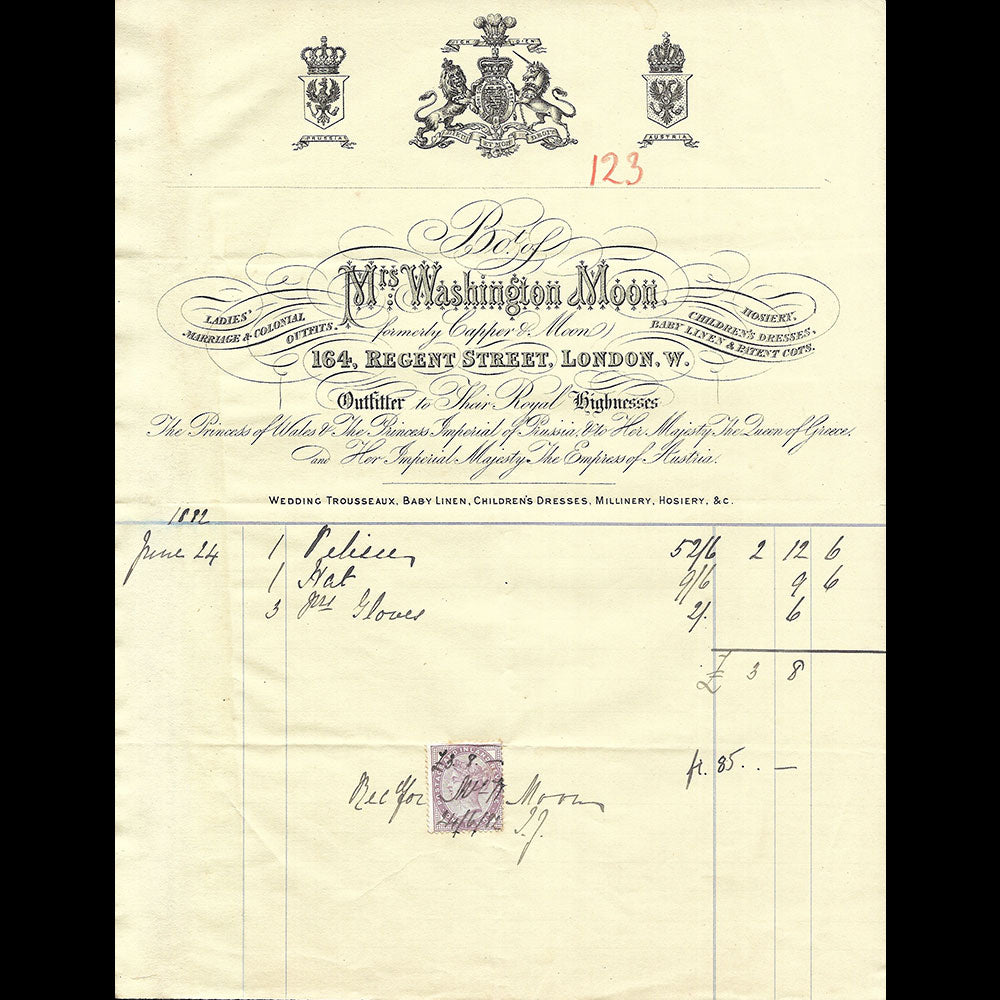 ICH DIEN
PRUSSIA
DIEU ET MON DROIT
AUSTRIA
123
Bot. of
Mrs Washington Moon.
formerly Capper & Moon
LADIES'
MARRIAGE & COLONIAL
OUTFITS.
HOSIERY,
CHILDREN'S DRESSES,
BABY LINEN & PATENT COTS.
164, REGENT STREET, LONDON, W.
Outfitter to Their Royal Highnesses
The Princess of Wales & The Princess Imperial of Prussia, & to Her Majesty The Queen of Greece,
and Her Imperial Majesty The Empress of Austria.
WEDDING TROUSSEAUX, BABY LINEN, CHILDREN'S DRESSES, MILLINERY, HOSIERY, &C.
1882
June 24 1 Pelisse 52/6 2 12 6
1 Hat 9/6 9 6
3 prs Gloves 2/. 6
£ 3 8
fr. 85..—
£3.8.—
Rec for Mrs W Moon
24/6/82 J.J.